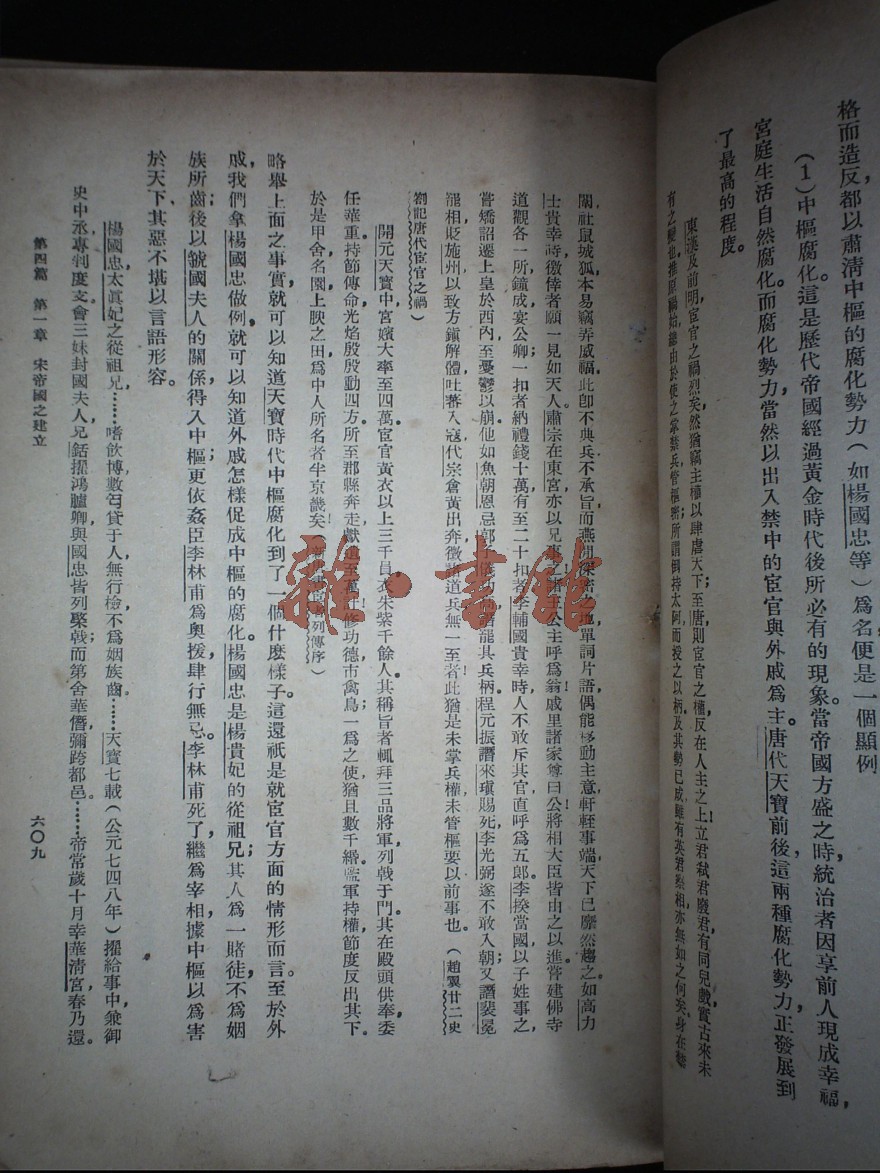 格而造反都以肅清中樞的腐化勢力(如楊國忠等)爲名便是一個顯例
(1)中樞腐化。這是歷代帝國經過黃金時代後所必有的現象。當帝國方盛之時,統治者因享前人現成幸福,
宮庭生活自然腐化。而腐化勢力當然以出入禁中的宦官與外戚爲主。唐代天寶前後,這兩種腐化勢力,正發展到
了最高的程度。
東漢及前明,宦官之禍烈矣,然猶竊主權以肆虐天下;至唐則宦官之權,反在人主之上,立君弒君廢君,有同兒戲,實古來未
有之變也。推原禍始,總由於使之掌禁兵,管樞密;所謂倒持太阿,而授之以柄,及其勢已成,雖有英君察相,亦無如之何矣。身在禁
闈,社鼠城狐,本易竊弄威福,此卽不典兵不承旨,而燕閒深密之地,單詞片語,偶能移動主意,軒輊事端,天下已靡然趨之。如高力
士貴幸時,徼倖者願一見如天人。肅宗在東宮,亦以兄事之,諸王公主呼爲翁,戚里諸家尊曰㸙,將相大臣,皆由之以進。嘗建佛寺
道觀各一所,鐘成,宴公卿,一扣者納禮錢十萬,有至二十扣者。李輔國貴幸時,人不敢斥其官,直呼爲五郎。李揆當國,以子姓事之,
嘗矯詔遷上皇於西內,至憂鬱以崩。他如魚朝恩忌郭子儀,譖罷其兵柄。程元振譖來瑱賜死,李光弼遂不敢入朝。又譖裴冕
罷相,貶施州,以致方鎭解體,吐蕃入寇,代宗倉黃出奔,徵諸道兵,無一至者。此猶是未掌兵權,未管樞要以前事也。(趙翼廿二史
劄記唐代宦官之禍)
開元天寶中,宮嬪大率至四萬,宦官黃衣以上三千員,衣朱紫千餘人。其稱旨者,輒拜三品將軍,列戟于門。其在殿頭供奉,委
任華重,持節傳命,光焰殷殷動四方。所至郡縣奔走,獻遺至萬計。修功德,市禽鳥,一爲之使,猶且數千緡。監軍持權,節度反出其下。
於是甲舍名園,上腴之田,爲中人所名者半京畿矣。
略舉上面之事實,就可以知道天寶時代中樞腐化到了一個什麽樣子。這還祇是就宦官方面的情形而言。至於外
戚,我們拿楊國忠做例,就可以知道外戚怎樣促成中樞的腐化。楊國忠是楊貴妃的從祖兄;其人爲一賭徒,不爲姻
族所齒;後以虢國夫人的關係,得入中樞;更依姦臣李林甫爲奥援,肆行無忌。李林甫死了,繼爲宰相,據中樞以爲害
於天下,其惡不堪以言語形容。
楊國忠,太眞妃之從祖兄,……嗜飲博,數丐貸于人,無行檢,不爲姻族齒。……天寶七載(公元七四八年)擢給事中,兼御
史中丞,專判度支。會三妹封國夫人,兄銛擢鴻臚卿,與國忠皆列棨戟,而第舍華僭,彌跨都邑。……帝常歲十月幸華淸宮,春乃還。
第四篇 第一章 宋帝國之建立
六〇九
雜·書館